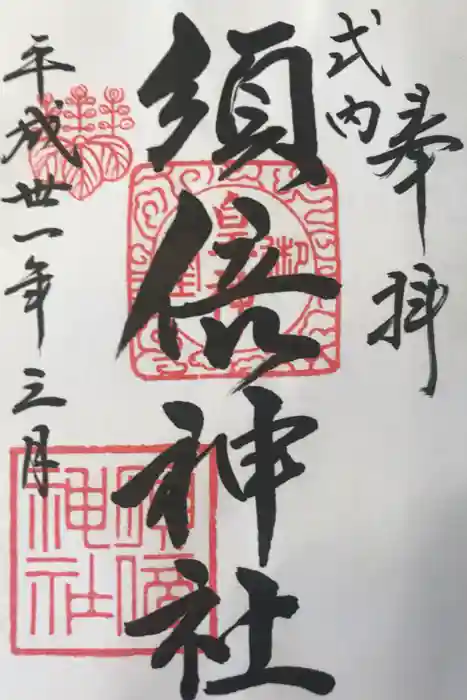 奉拝
式内
須倍神社
平成丗一年三月
須倍神社